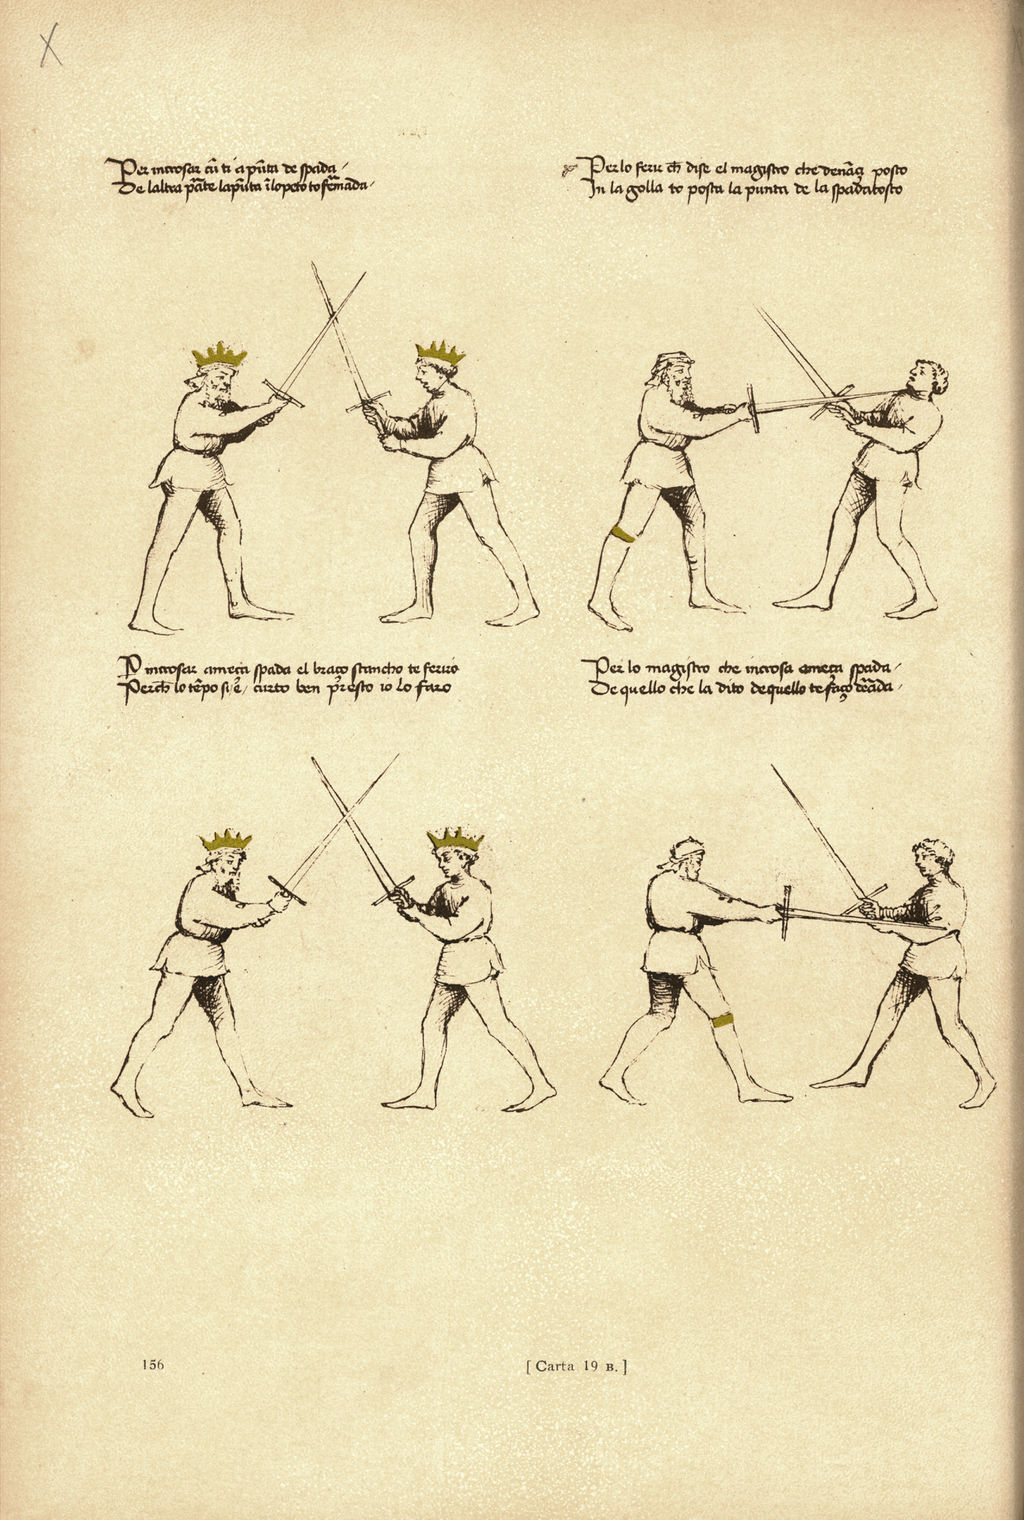 X
Per incrosar cũ ti a pũta de spada
De laltra pãte la pũta ĩ lo peto to fermada
Per lo ferir ch̃ dise el magistro che denãçi posto
In la golla to posta la punta de la spada tosto
P incrosar ameça spada el braço stancho te feriro
Perch̃ lo tẽpo si ẽ curto ben presto io lo faro
Per lo magistro che incrosa ameça spada
De quello che la dito de quello te faço
156
[ Carta 19 B. ]